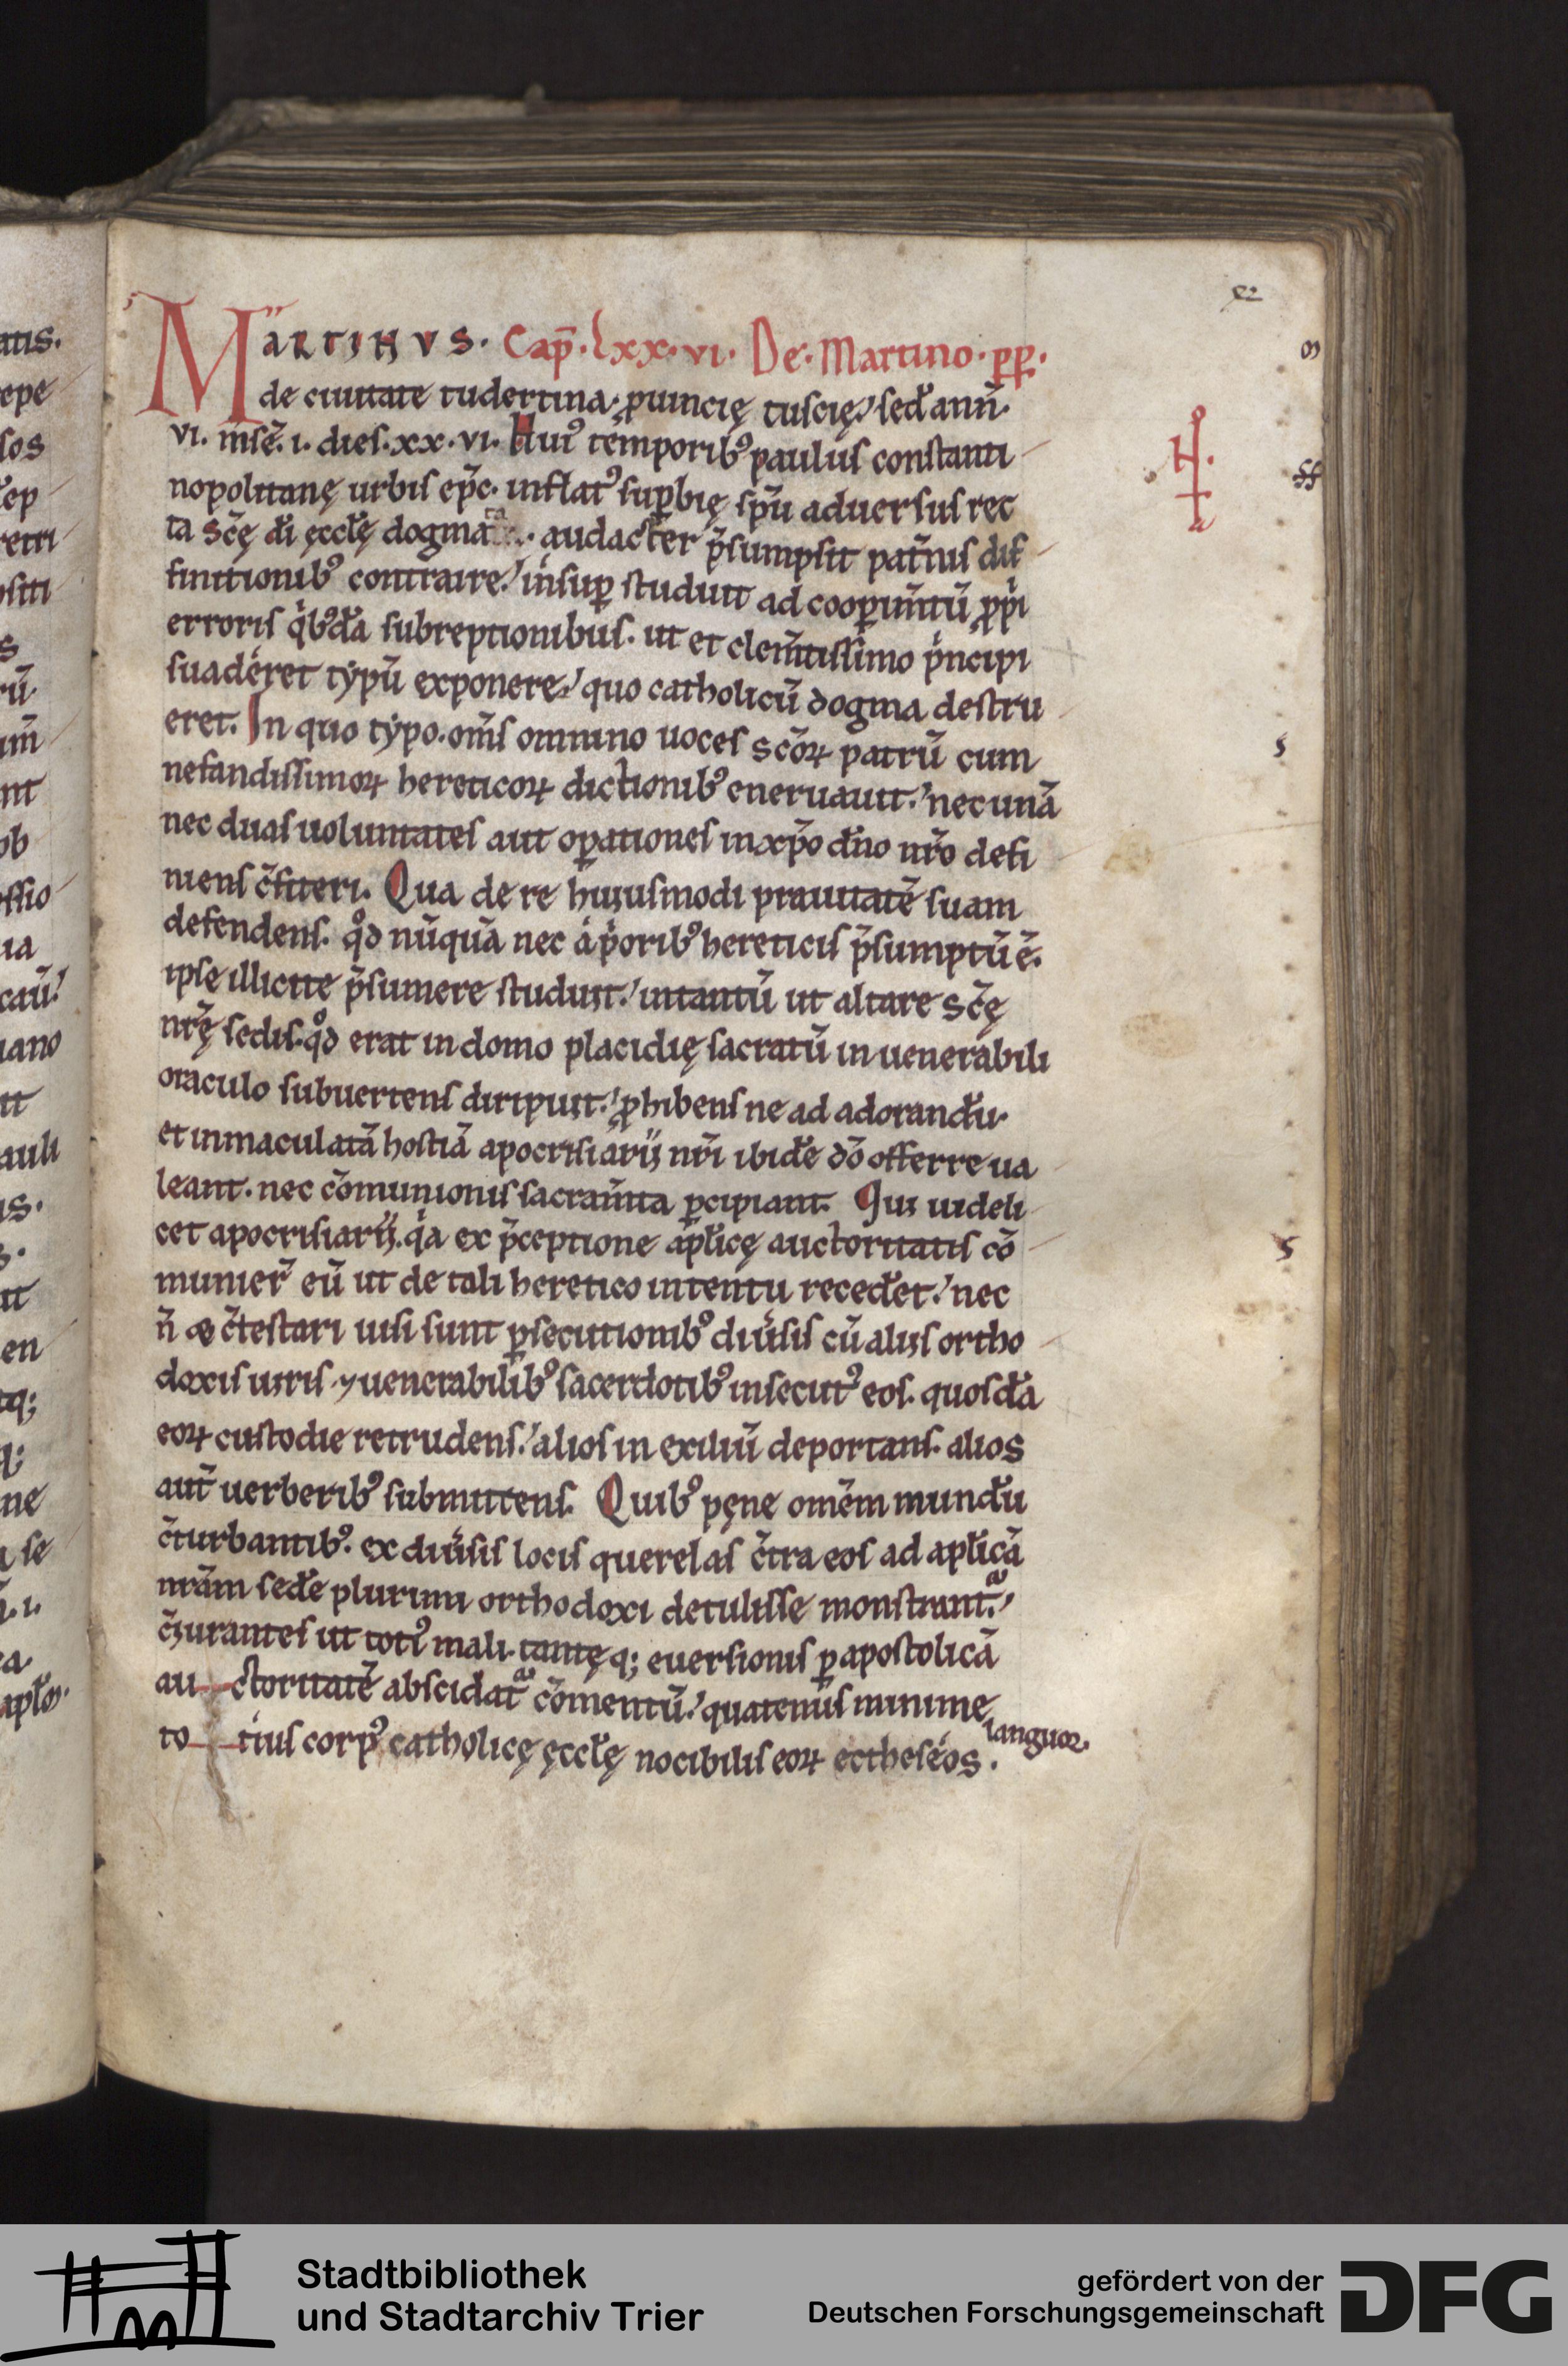 MARTINVS. Cap̄. Lxx. vi. De. Martino. pp.
de ciuitate tudertina. ꝓuincię tuscię. sed̛ ann̄.
vi. m̄sē. i. dies. xx. vi. Huiꝰ temporibꝰ paulus constanti
nopolitanę urbis ep̄c. inflatꝰ suꝑbię sp̄u aduersus rec
ta scę̄ di̛ ęccl̛ę dogmata. audacter p̄sumpsit pat̄nis dif
finitionibꝰ contraire. insuꝑ studuit ad cooꝑim̄tū ꝓpͥi
erroris qͥbꝰd̛a subreptionibus. ut et clem̄tissimo pͥncipi
suaderet typū exponere. quo catholicū dogma destru
eret. In quo typo. om̄s omnino uoces scōꝝ patrū cum
nefandissimoꝝ hereticoꝝ dictionibꝰ eneruauit. nec unā
nec duas uoluntates aut oꝑationes in xp̄o dn̄o nr̄o defi
niens c̄fiteri. Qua de re huiusmodi prauitatē suam
defendens. qͦd nūquā nec a pͥoribꝰ hereticis p̄sumptū ē.
ipse illicite p̄sumere studuit. intantū ut altare scę̄
nr̄ę sedis. qͦd erat in domo placidię sacratū in uenerabili
oraculo subuertens diripuit. ꝓhibens ne ad adorand̛u.
et inmaculatā hostiā apocrisiarij nr̄i ibid̛e dō offerre ua
leant. nec cōmunionis sacram̄ta ꝑcipiant. Qui uideli
cet apocrisiarij. qͥa ex p̄ceptione apl̛icę auctoritatis cō
munier̄ eū ut de tali heretico intentu reced̛et. nec
n̄ & c̄testari uisi sunt ꝑsecutionibꝰ diūsis cū aliis ortho
doxis uiris ⁊ uenerabilibꝰ sacerdotibꝰ insecutꝰ eos. quosd̛a
eoꝝ custodie retrudens. alios in exiliū deportans. alios
aut̄ uerberibꝰ submittens. Quibꝰ pęne omēm mund̛u
c̄turbantibꝰ. ex diūsis locis querelas c̄tra eos ad apl̛icā
nrām sed̛e plurimi orthodoxi detulisse monstrant᷑.
c̄iurantes ut totiꝰ mali. tantę q; euersionis ꝑ apostolicā
au ctoritatē abscidat᷑ cōmentū. quatenus minime
to tius corpꝰ catholicę ęccl̛ę nocibilis eoꝝ ectheseos.
languor.
Stadtbibliothek
und Stadtarchiv Trier
gefördert von der
Deutschen Forschungsgemeinschaft
DFG